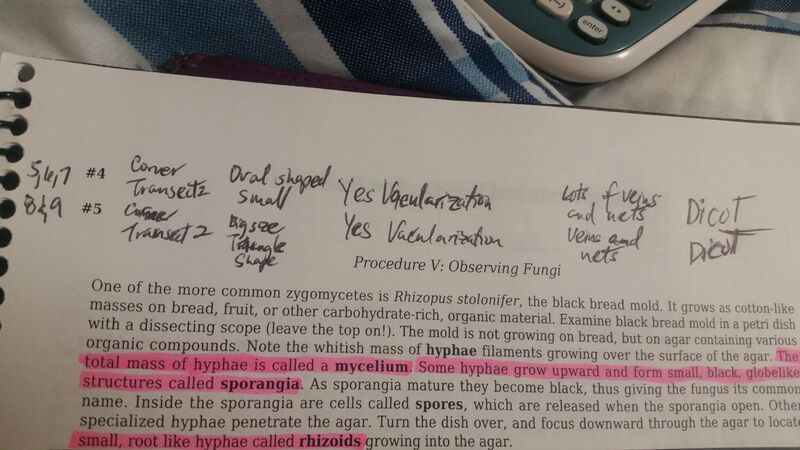 enter
5,6,7 #4 Corner Oval shaped Yes Vacularization Lots of veins Dicot
Transect 2 small and nets
8&9 #5 Corner Big size Yes Vacularization veins and Dicot
Transect 2 Triangle nets
Shape
Procedure V: Observing Fungi
One of the more common zygomycetes is Rhizopus stolonifer, the black bread mold. It grows as cotton-like
masses on bread, fruit, or other carbohydrate-rich, organic material. Examine black bread mold in a petri dish
with a dissecting scope (leave the top on!). The mold is not growing on bread, but on agar containing various
organic compounds. Note the whitish mass of hyphae filaments growing over the surface of the agar. The
total mass of hyphae is called a mycelium. Some hyphae grow upward and form small, black, globelike
structures called sporangia. As sporangia mature they become black, thus giving the fungus its common
name. Inside the sporangia are cells called spores, which are released when the sporangia open. Other
specialized hyphae penetrate the agar. Turn the dish over, and focus downward through the agar to locate
small, root like hyphae called rhizoids growing into the agar.